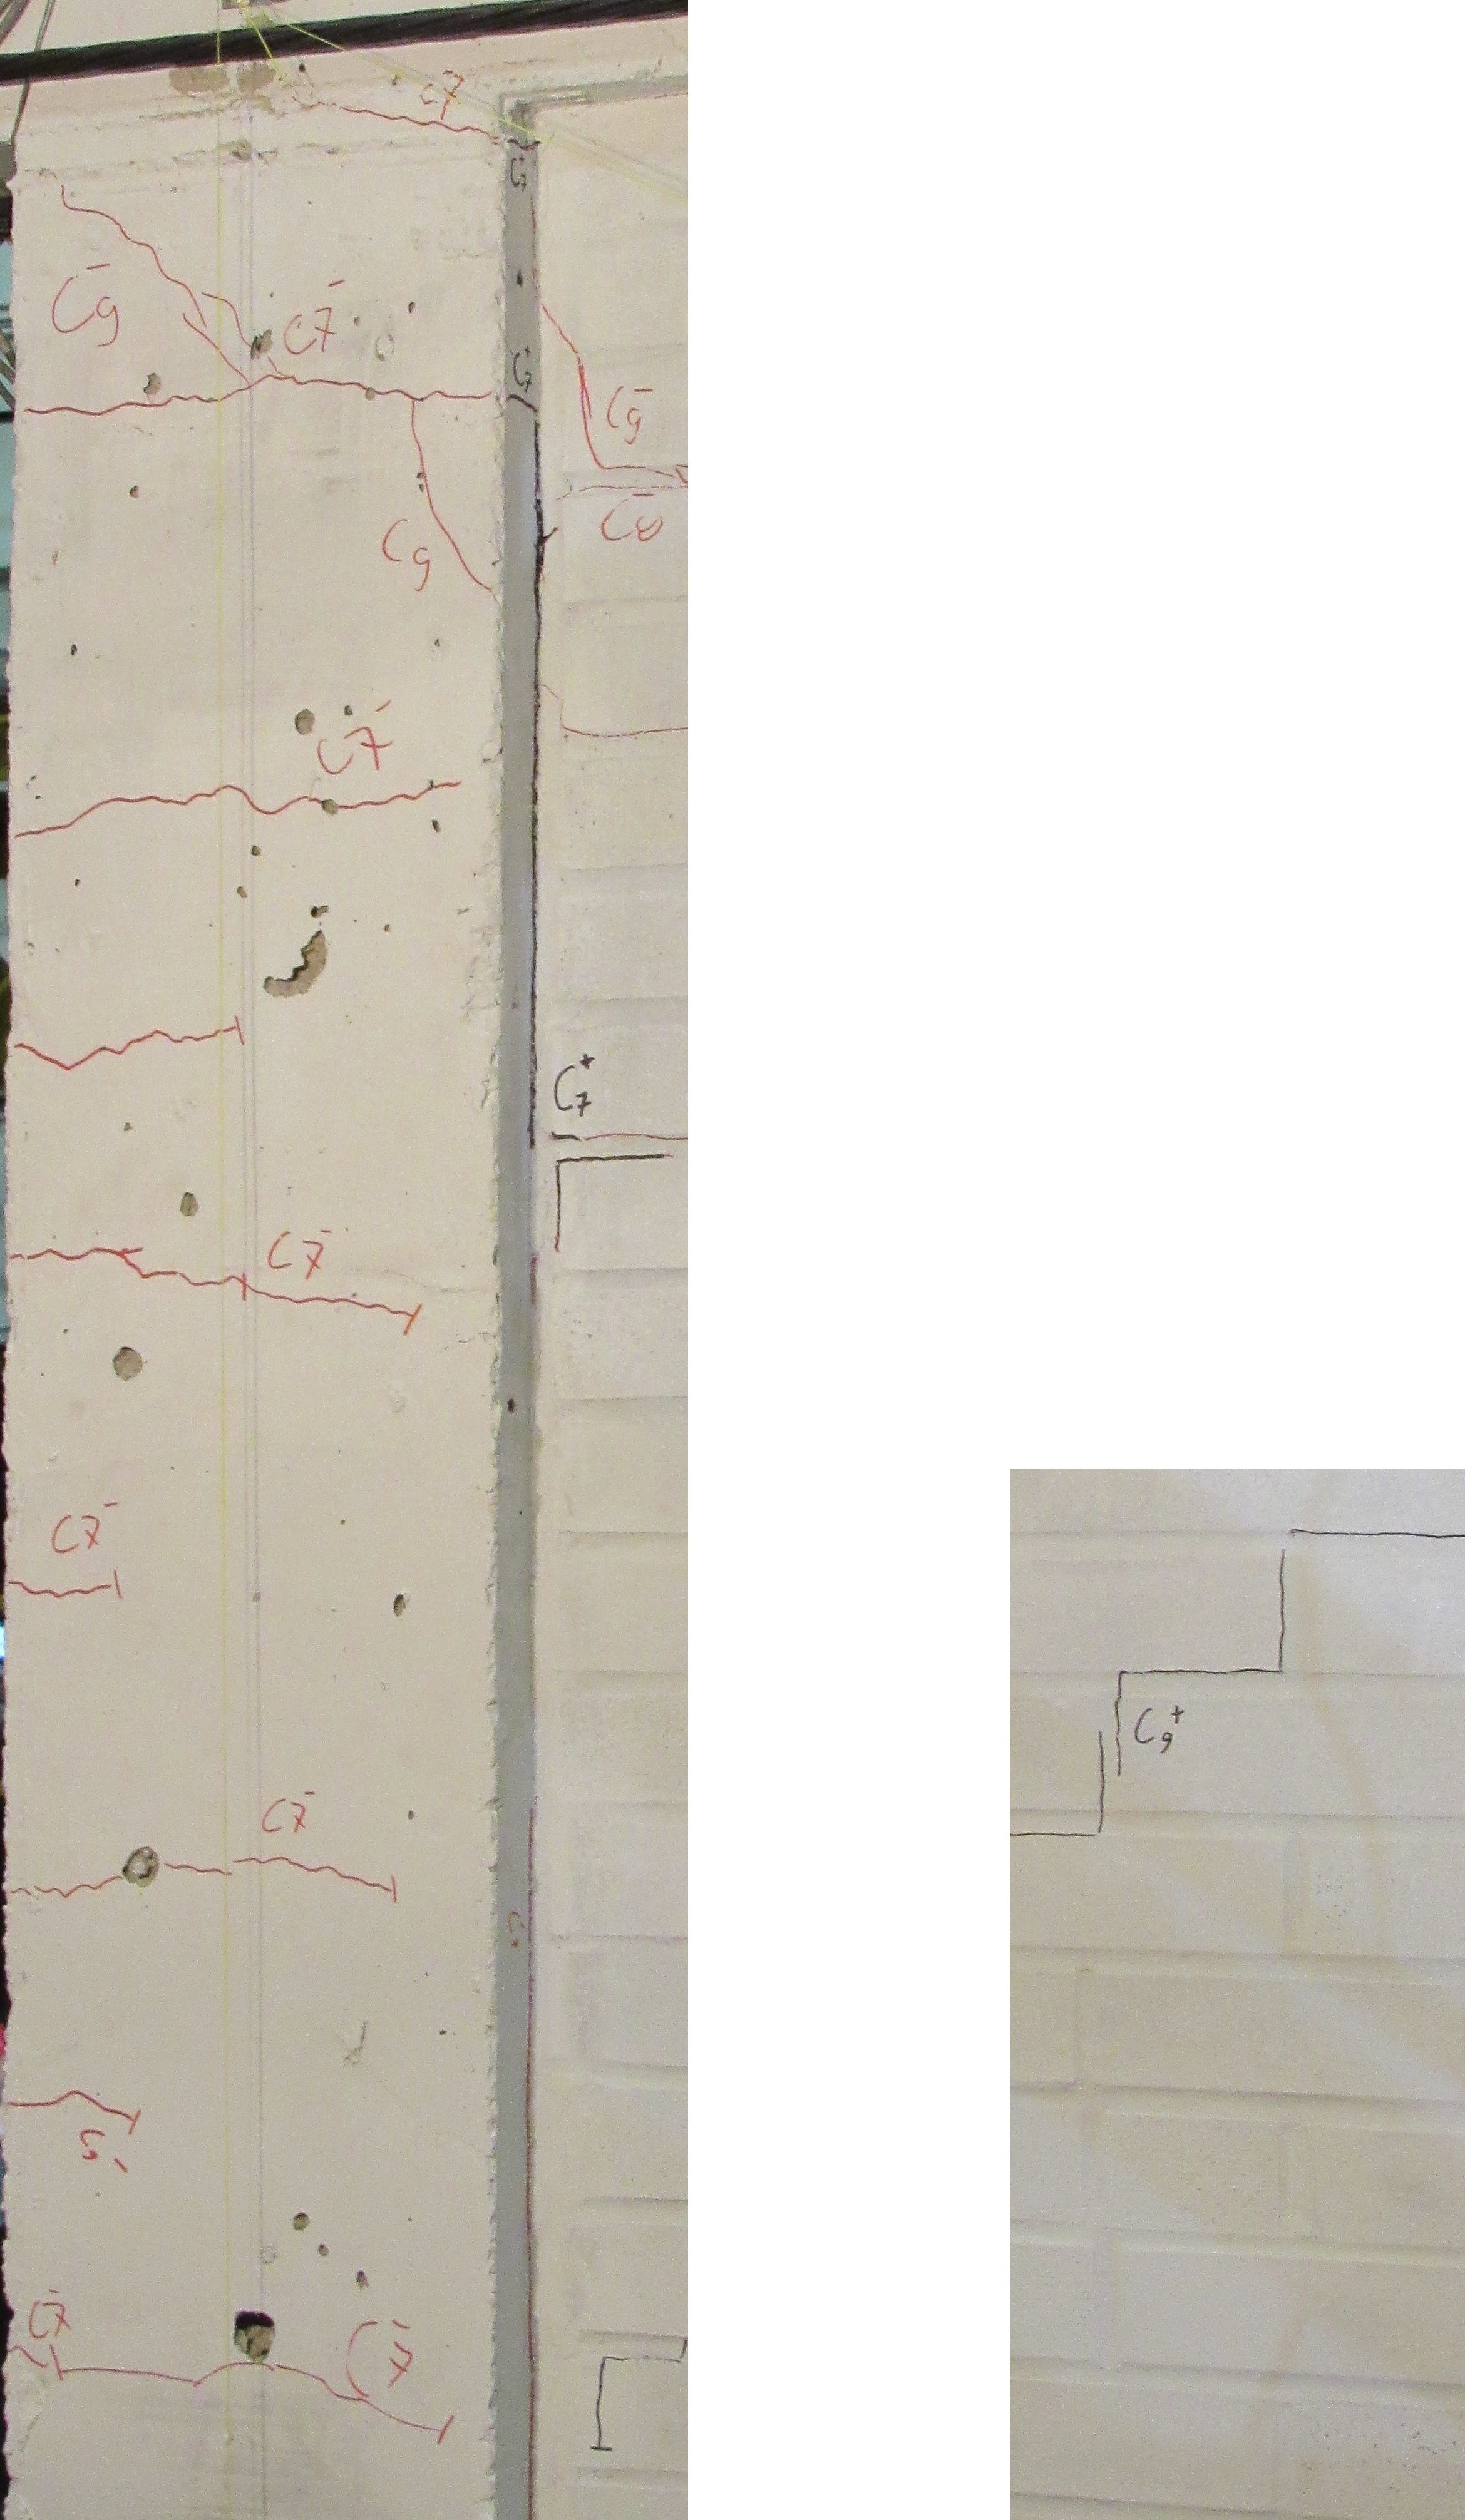 C7-
C7
C9-
C7-
C7+
C9-
C8-
C9
C7-
C7+
C7-
C7-
C9+
C7-
C9-
C7-
C7-